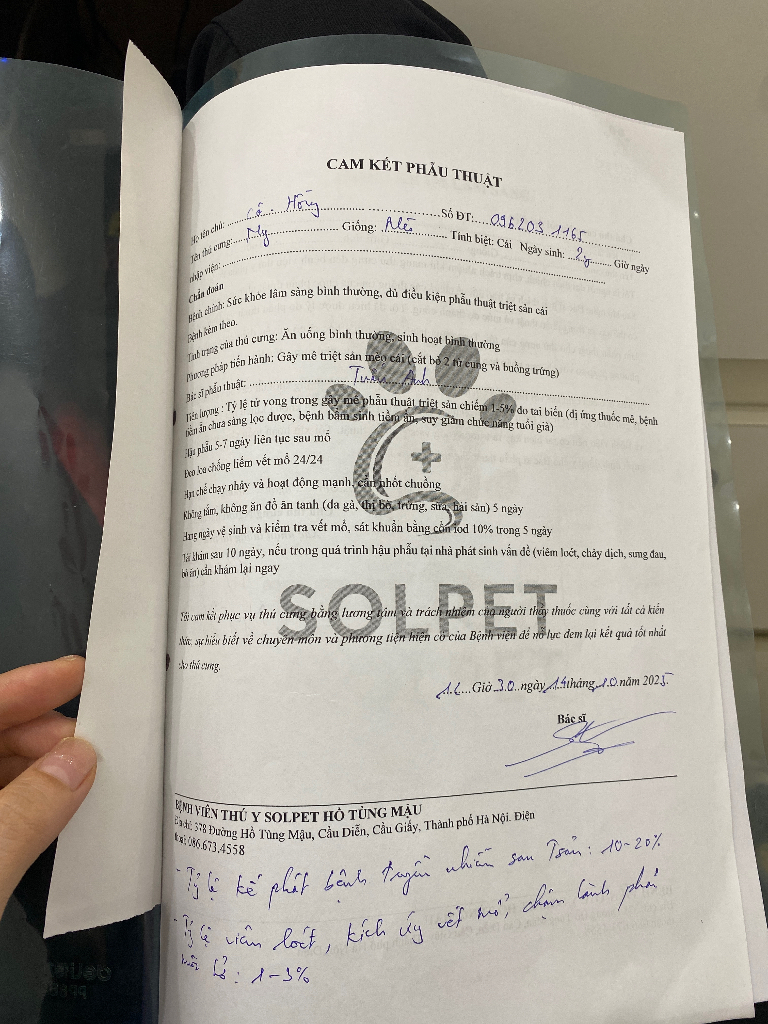 CAM KẾT PHẪU THUẬT
Họ tên chủ: Cô. Hồng Số ĐT: 096.203.1165
Tên thú cưng: My Giống: Tính biệt: Cái Ngày sinh: 2y Giờ ngày
nhập viện:
Chẩn đoán
Bệnh chính: Sức khỏe lâm sàng bình thường, đủ điều kiện phẫu thuật triệt sản cái
Bệnh kèm theo.
Tình trạng của thú cưng: Ăn uống bình thường, sinh hoạt bình thường
Phương pháp tiến hành: Gây mê triệt sản mèo cái (cắt bỏ 2 tử cung và buồng trứng)
Bác sĩ phẫu thuật: Anh
Tiên lượng : Tỷ lệ tử vong trong gây mê phẫu thuật triệt sản chiếm 1-5% do tai biến (dị ứng thuốc mê, bệnh
tiền ẩn chưa sàng lọc được, bệnh bẩm sinh tiềm ẩn, suy giảm chức năng tuổi già)
Hậu phẫu 5-7 ngày liên tục sau mổ
Đeo loa chống liếm vết mổ 24/24
Hạn chế chạy nhảy và hoạt động mạnh, cần nhốt chuồng
Không tắm, không ăn đồ ăn tanh (da gà, thịt bò, trứng, sữa, hải sản) 5 ngày
Hàng ngày vệ sinh và kiểm tra vết mổ, sát khuẩn bằng cồn iod 10% trong 5 ngày
Tái khám sau 10 ngày, nếu trong quá trình hậu phẫu tại nhà phát sinh vấn đề (viêm loét, chảy dịch, sưng đau,
bỏ ăn) cần khám lại ngay
SOLPET
Tôi cam kết phục vụ thú cưng bằng lương tâm và trách nhiệm của người thầy thuốc cùng với tất cả kiến
thức, sự hiểu biết về chuyên môn và phương tiện hiện có của Bệnh viện để nỗ lực đem lại kết quả tốt nhất
cho thú cưng.
Giờ 30 ngày 14 tháng 10 năm 2025
Bác sĩ
BỆNH VIỆN THÚ Y SOLPET HỒ TÙNG MẬU
Địa chỉ: 378 Đường Hồ Tùng Mậu, Cầu Diễn, Cầu Giấy, Thành phố Hà Nội. Điện
thoại: 086.673.4558
- Tỷ lệ kế phát bệnh truyền nhiễm sau Tsản: 10-20%
- Tỷ lệ viêm loét, kích ứng vết mổ, chậm lành phải
: 1-3%